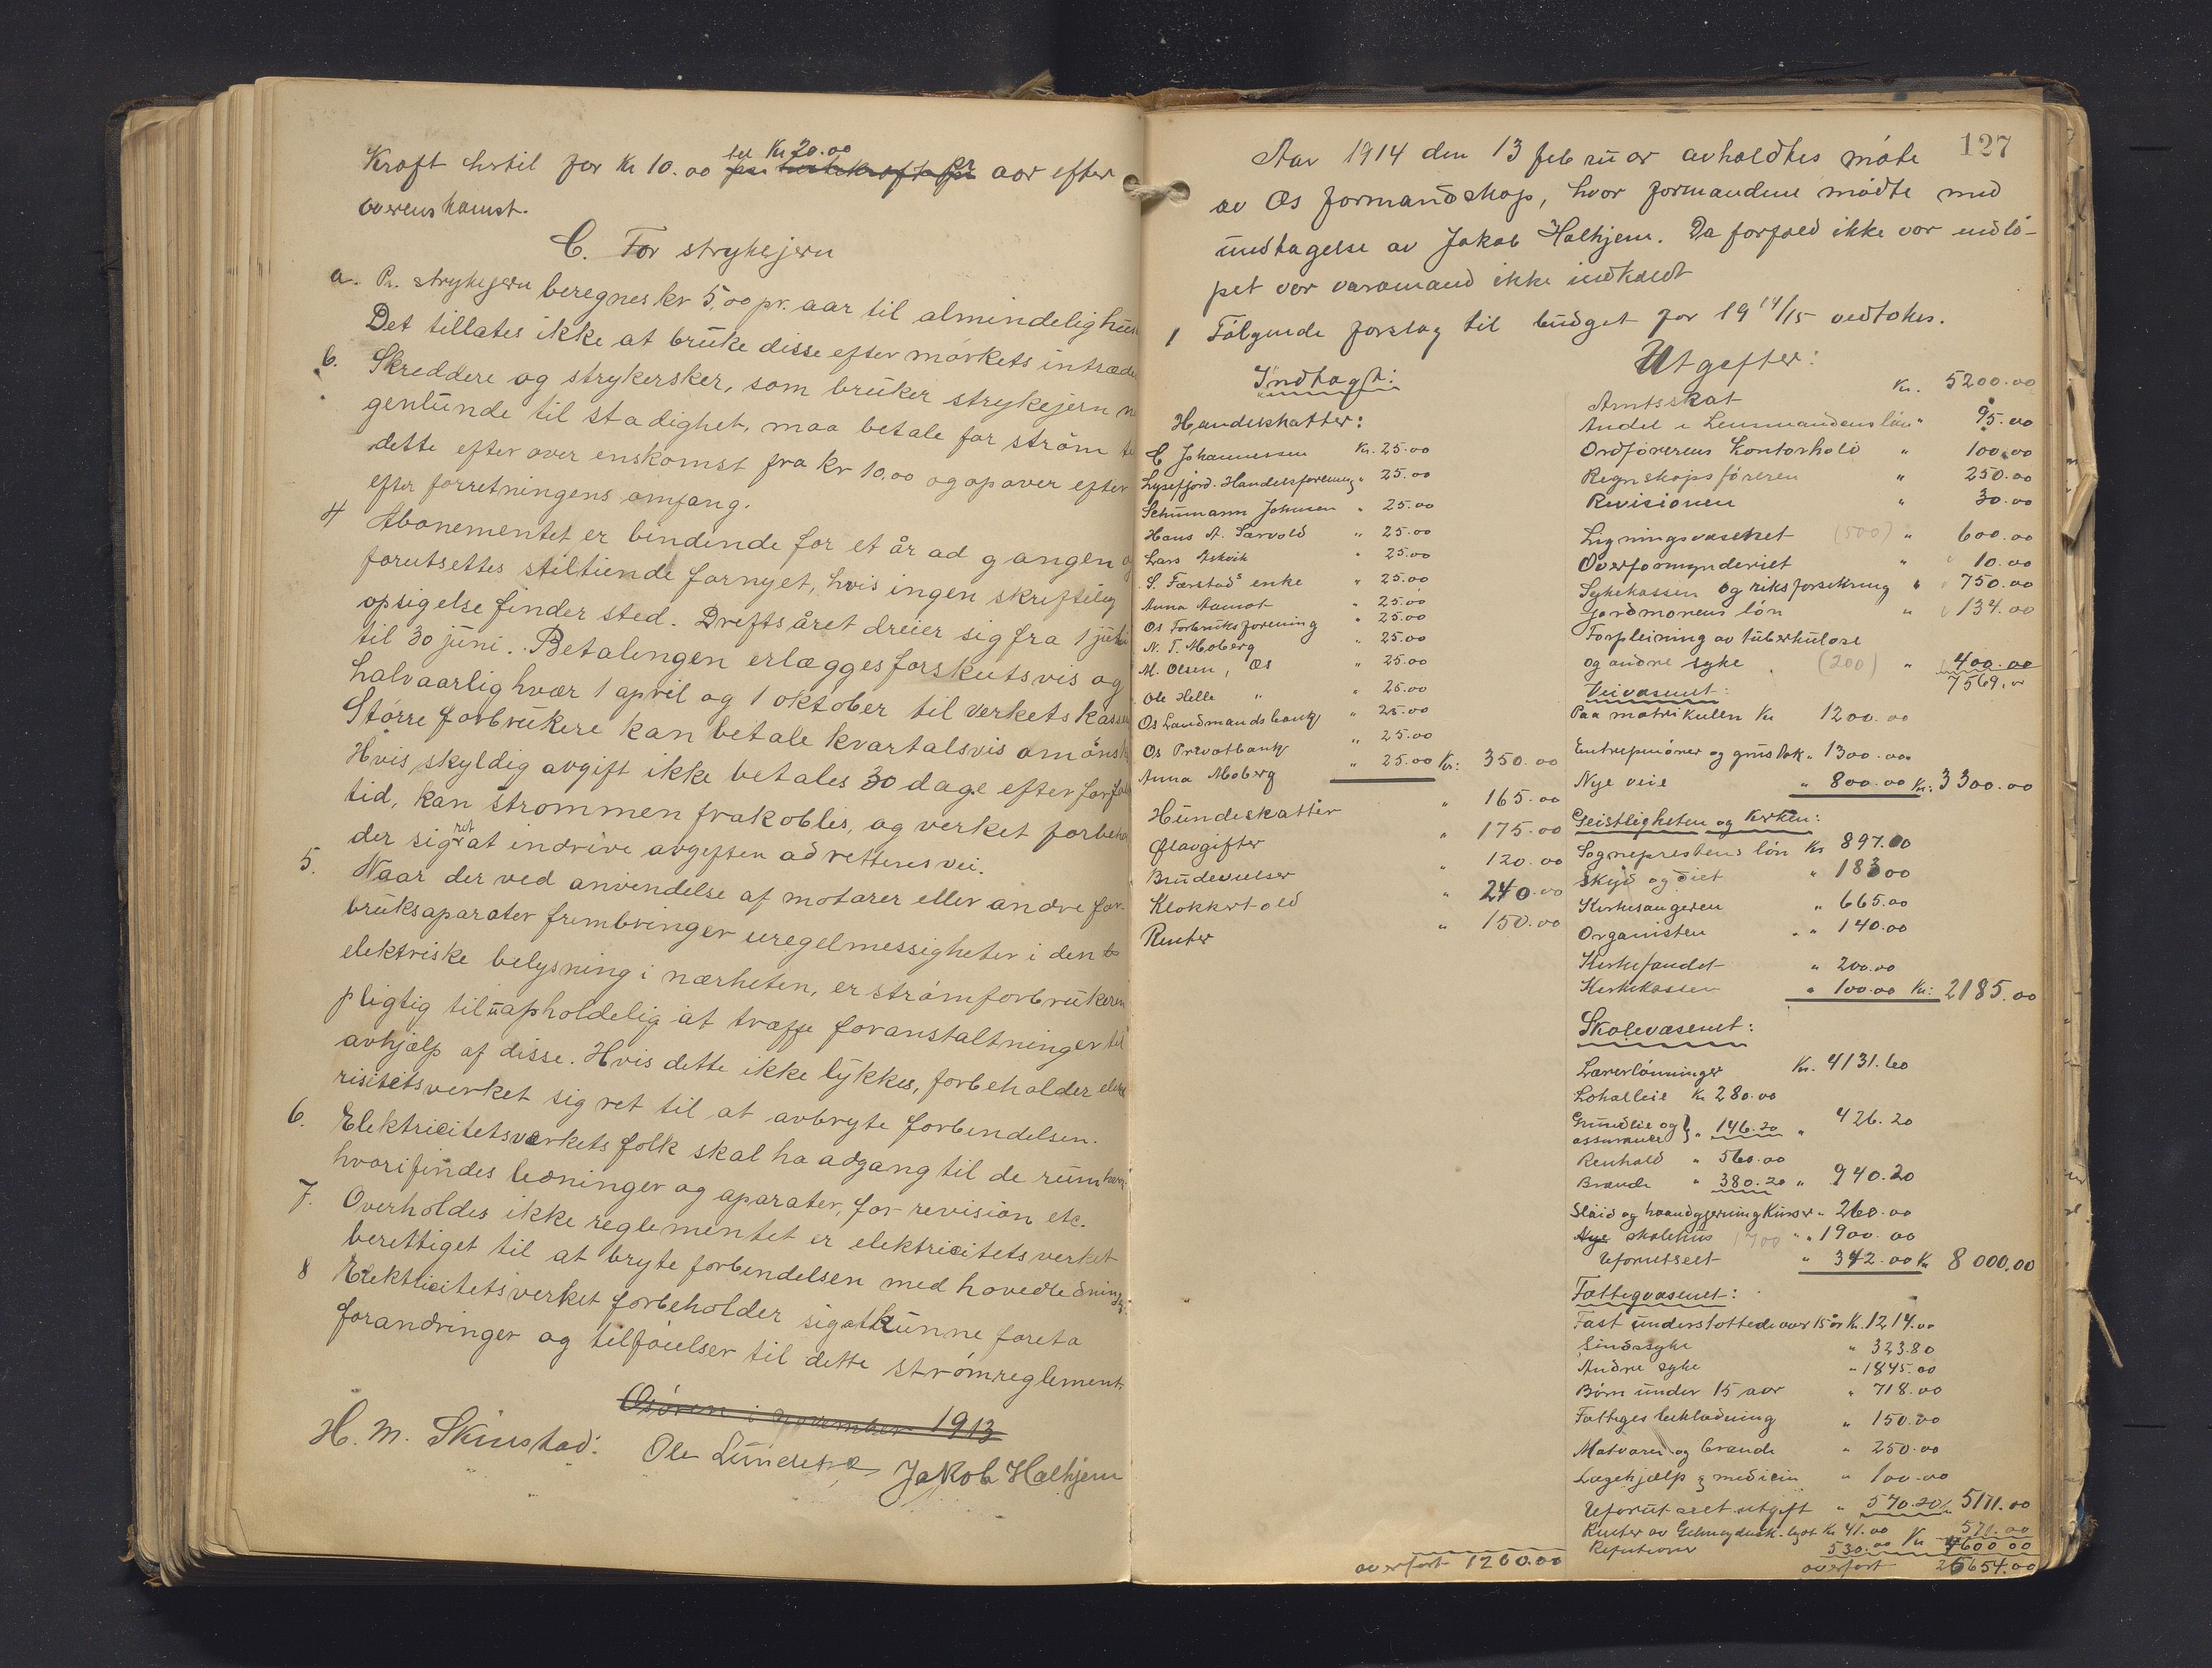 Kraft hertil for Kr 10.00 til Kr 20.00 pr aar efter
overenskomst.
C. For strykejern
a. Pr. strykejern beregnes kr 5,00 pr. aar til almindelig hus
Det tillates ikke at bruke disse efter mørkets intræde
b. Skreddere og strykersker, som bruker strykejern n
genlunde til stadighet, maa betale for strøm te
dette efter over enskomst fra kr 10,00 og op over efter
efter forretningens omfang.
4 Abonementet er bindende for et år ad gangen o
forutsettes stiltiende fornyet, hvis ingen skriftelig
opsigelse finder sted. Driftsåret dreier sig fra 1 juli
til 30 juni. Betalingen erlægges forskutsvis og
halvaarlig hvær 1 april og 1 oktober til verkets kasse
Større forbrukere kan betale kvartalsvis om ønsk
Hvis skyldig avgift ikke betales 30 dage efter forfal
tid, kan strømmen frakobles, og verket forbeho
der sig ret at indrive avgiften ad rettens vei.
5. Naar der ved anvendelse af motorer eller andre for-
bruksaparater frembringer uregelmessigheter i den
elektriske belysning i nærheten, er strømforbrukeren
pligtig til uopholdelig at træffe foranstaltninger til
avhjælp af disse. Hvis dette ikke lykkes, forbeholder elekt
risitetsverket sig ret til at avbryte forbindelsen.
6. Elektricitetsværkets folk skal ha adgang til de rum hvor
hvori findes ledninger og aparater, for revision etc.
7. Overholdes ikke reglementet er elektricitetsverket
berettiget til at bryte forbindelsen med hovedledning
8 Elektricitetsverket forbeholder sig at kunne foreta
forandringer og tilføielser til dette strømreglement.
Osøren i november 1913
H. M. Skeistad. Ole Lunde Jakob Halhjem
127
Aar 1914 den 13 februar avholdtes møte
av Os formandskap, hvor formændene møtte med
undtagelse av Jakob Halhjem. Da forfald ikke var indlø-
pet var varamand ikke indkaldt
1 Følgende forslag til budget for 19 14/15 vedtokes.
Indtægt:
Handelskatter:
C Johannessen Kr. 25.00
Lysefjord. Handelsforening " 25.00
Schumann Johnsen " 25.00
Hans A. Særvold " 25.00
Lars Askvik " 25.00
S. Færstads enke " 25.00
Anna Aamot " 25.00
Os Forbruksforening " 25.00
N. T. Moberg " 25.00
M. Olsen, Os " 25.00
Ole Helle " " 25.00
Os Landmandsbank " 25.00
Os Privatbank " 25.00
Anna Moberg " 25.00 Kr: 350.00
Hundeskatter " 165.00
Ølavgifter " 175.00
Brudevielser " 120.00
Klokkertold " 240.00
Renter " 150.00
overført 1200.00
Utgifter:
Amtsskat Kr. 5200.00
Andel i Lensmandens løn " 95.00
Ordførerens Kontorhold " 100.00
Regnskapsføreren " 250.00
Revisionen " 30.00
Ligningsvæsenet (500) " 600.00
Overformynderiet " 10.00
Sykekassen og riksforsikring " 750.00
Jordmorens løn " 134.00
Forpleining av tuberkuløse
og andre syke (200) " 400.00
7569.00
Veivæsenet:
Paa matrikulen Kr 1200.00
Entreprenører og grustak " 1300.00
Nye veie " 800.00 Kr: 3300.00
Geistligheten og kirken:
Sogneprestens løn Kr 897.00
Skyds og diet " 183 00
Kirkesangeren " 665.00
Organisten " 140.00
Kirkefondet " 200.00
Kirkekassen " 100.00 Kr: 2185.00
Skolevæsenet:
Lærerlønninger Kr. 4131.60
Lokalleie Kr 280.00
Grundleie og
assurance " 146.20 " 426.20
Renhold " 560.00
Brænde " 380.20 " 940.20
Sløid og haandgjerning Kurser " 260.00
Nye skolehus 1700 " 1900.00
Uforutseet " 342.00 Kr 8 000.00
Fattigvæsenet:
Fast understøttede over 15 år Kr. 1214.00
Sindssyke " 323.80
Andre syke " 1845.00
Børn under 15 aar " 718.00
Fattiges beklædning " 150.00
Matvarer og brænde " 250.00
Lægehjælp & medicin " 100.00
Uforutseet utgift " 570.20 5171.00
Renter av Kr 41.00 571.00
Refusioner 530.00 Kr 4600 00
overført 25654.00